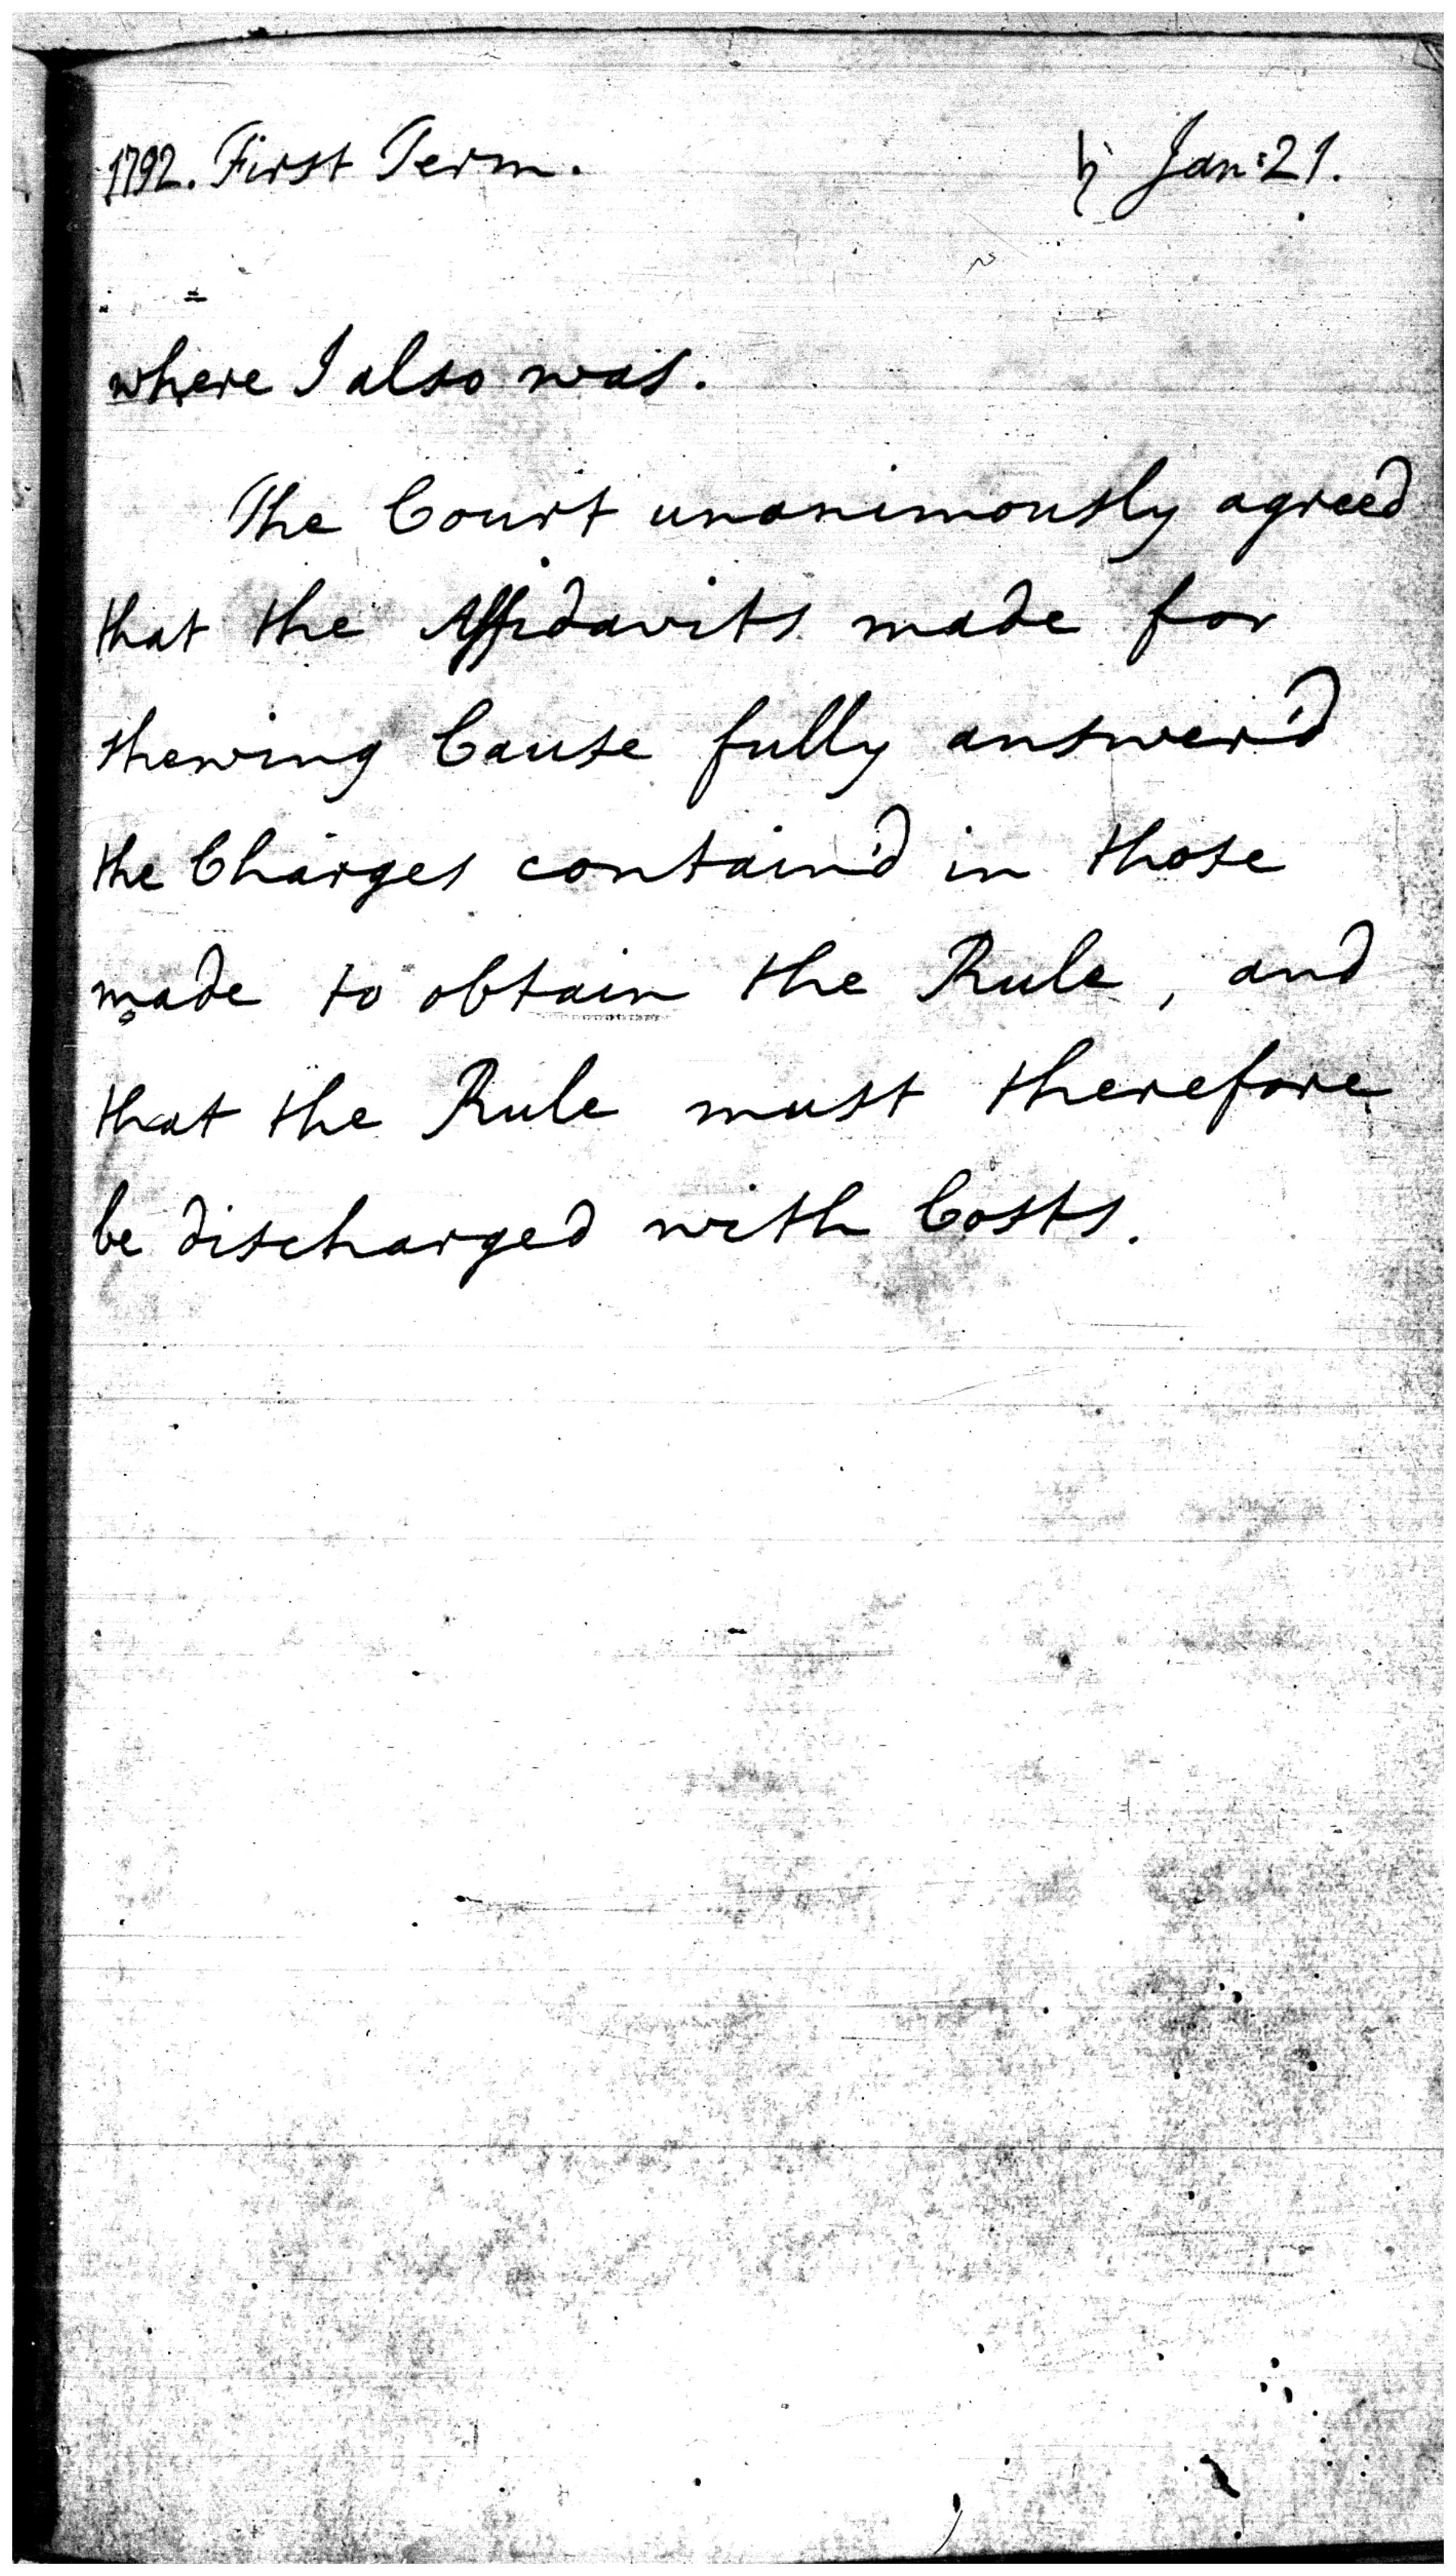 1792. First Term. ♄ Jan: 21.
where I also was.
The Court unanimously agreed
that the Affidavits made for
shewing Cause fully answer'd
the Charges contain'd in those
made to obtain the Rule, and
that the Rule must therefore
be discharged with Costs.